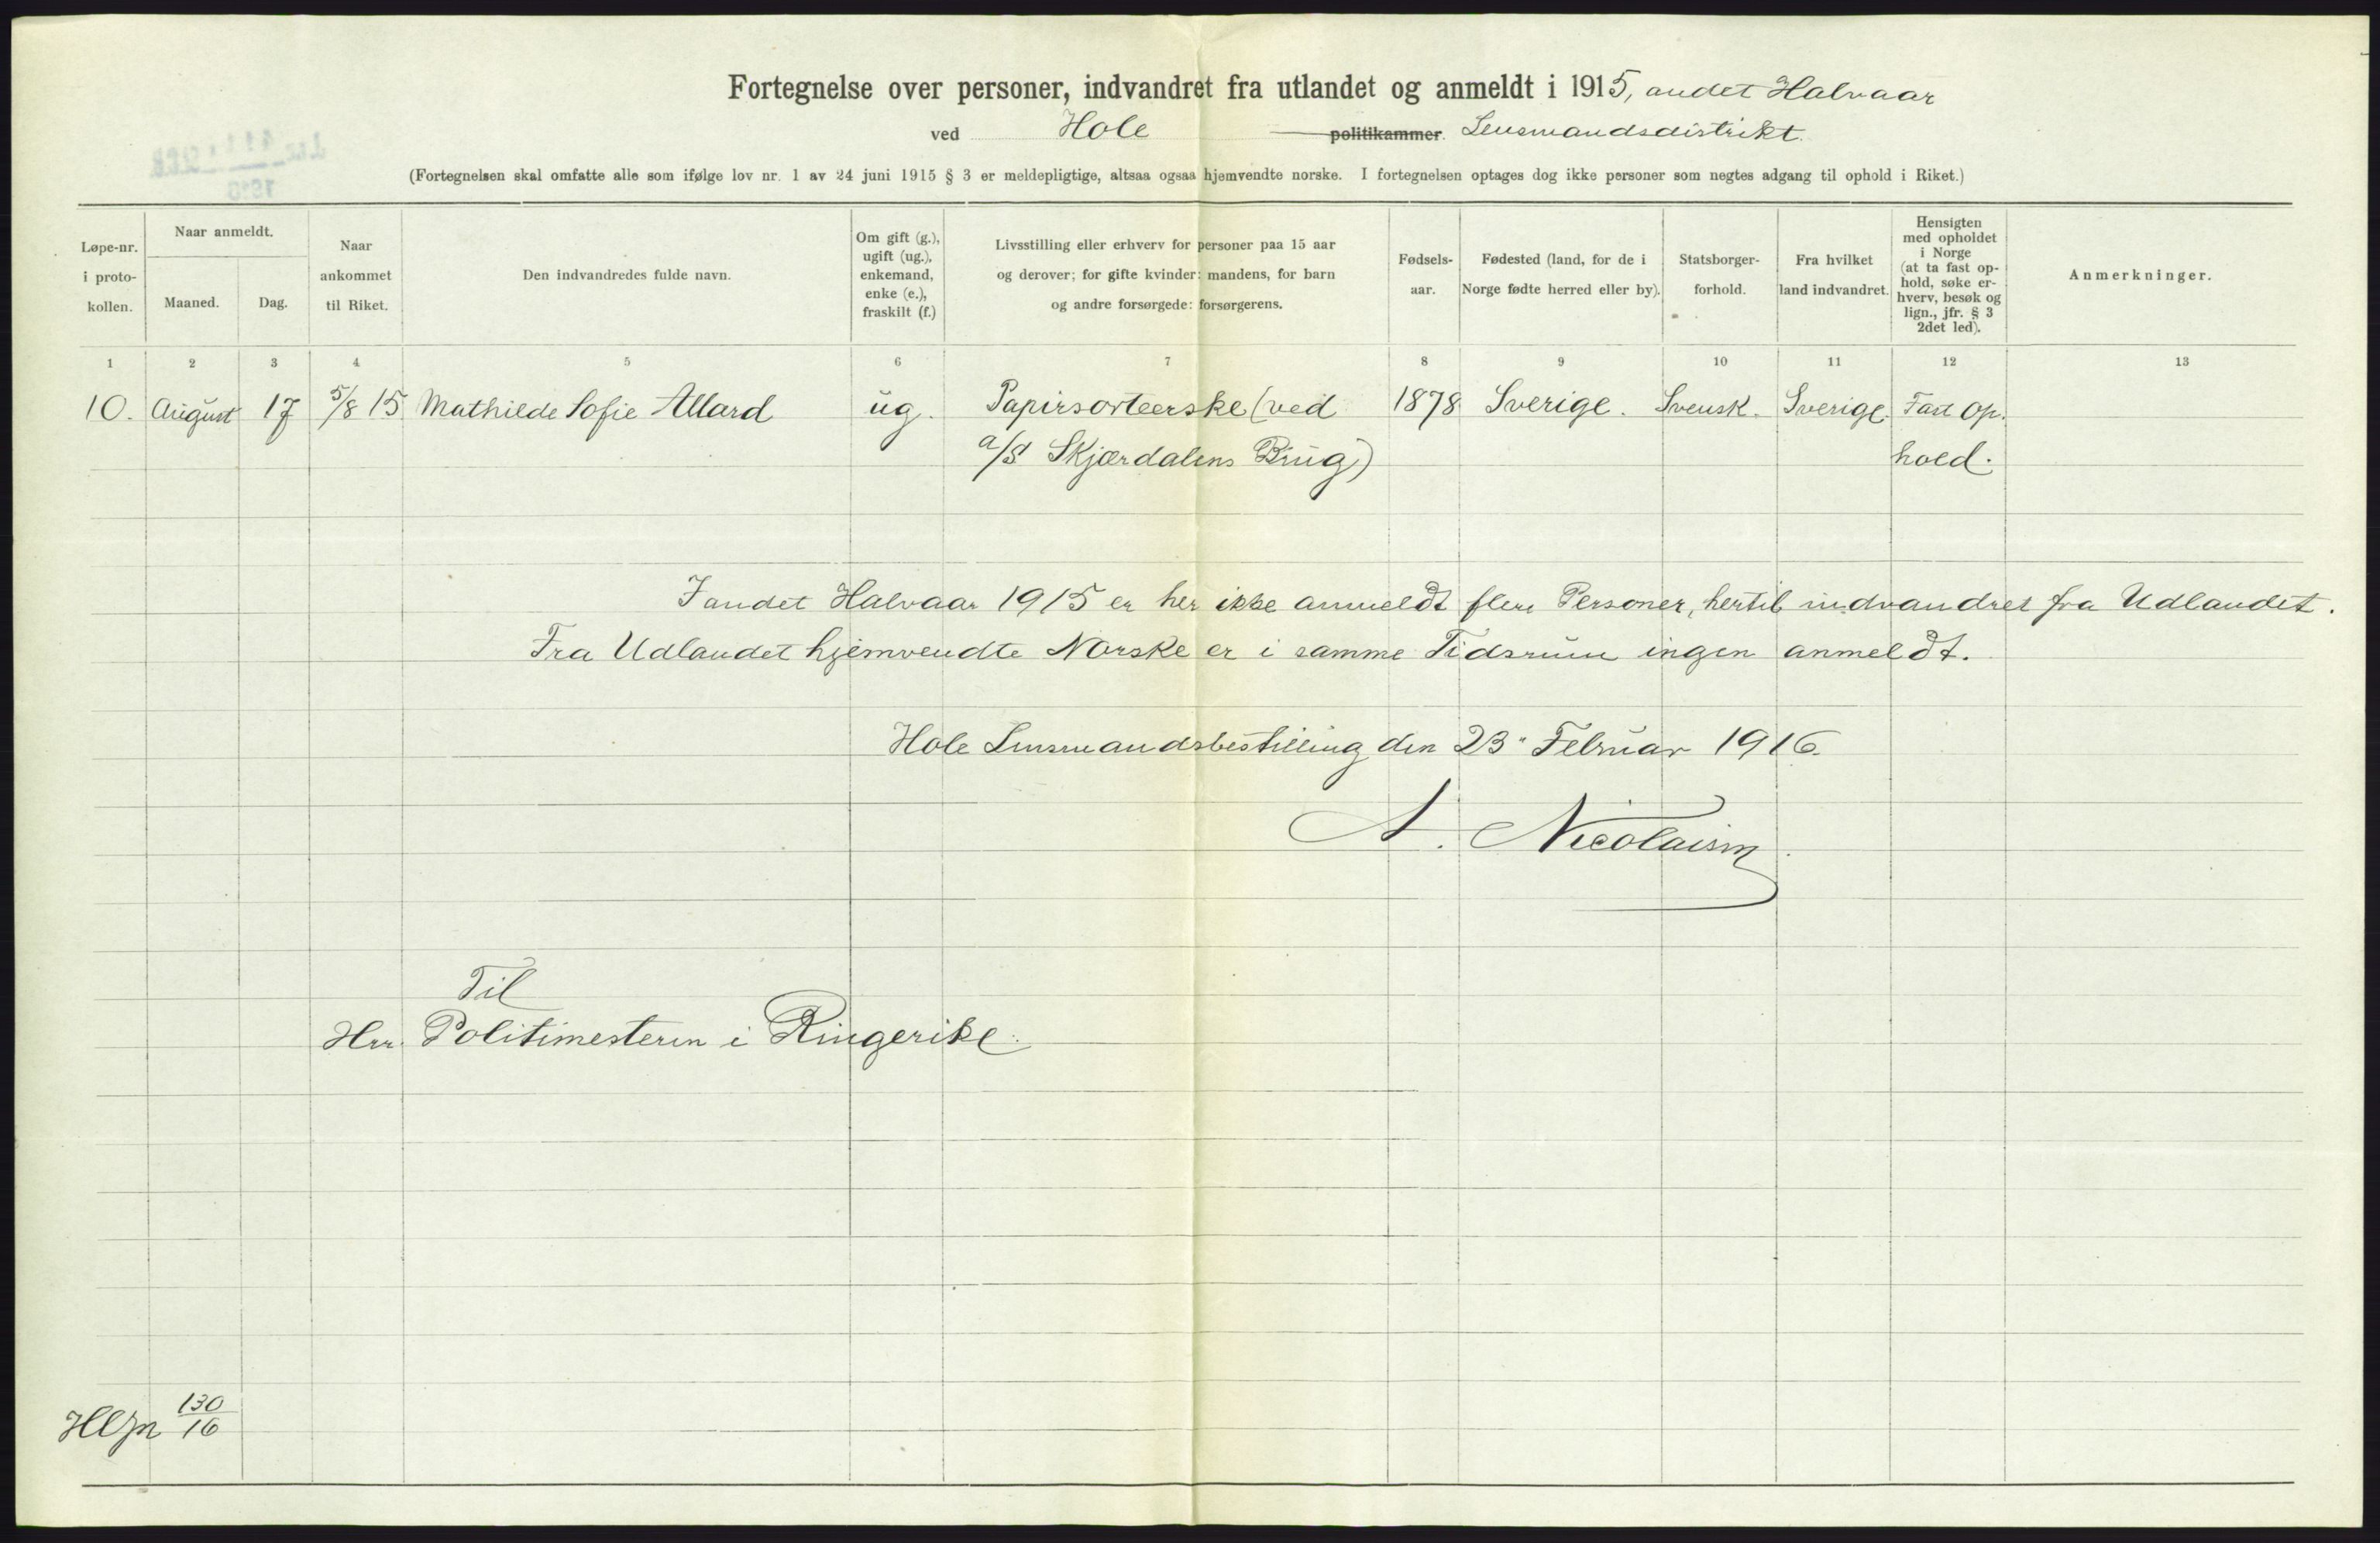 Fortegnelse over personer, indvandret fra utlandet og anmeldt i 1915, andet Halvaar
ved Hole politikammer. Lensmandsdistrikt.
(Fortegnelsen skal omfatte alle som ifølge lov nr. 1 av 24 juni 1915 § 3 er meldepligtige, altsaa ogsaa hjemvendte norske. I fortegnelsen optages dog ikke personer som negtes adgang til ophold i Riket.)
Løpe-nr.
i proto-
kollen.
Naar anmeldt.
Maaned.
Dag.
Naar
ankommet
til Riket.
Den indvandredes fulde navn.
Om gift (g.),
ugift (ug.),
enkemand,
enke (e.),
fraskilt (f.)
Livsstilling eller erhverv for personer paa 15 aar
og derover; for gifte kvinder: mandens, for barn
og andre forsørgede: forsørgerens.
Fødsels-
aar.
Fødested (land, for de i
Norge fødte herred eller by).
Statsborger-
forhold.
Fra hvilket
land indvandret.
Hensigten
med opholdet
i Norge
(at ta fast op-
hold, søke er-
hverv, besøk og
lign., jfr. § 3
2det led).
Anmerkninger.
1 2 3 4 5 6 7 8 9 10 11 12 13
10. August 17 5/8 15 Mathilde Sofie Allard ug. Papirsorteerske (ved 1878 Sverige. Svensk. Sverige. Fast op.
a/S Skjærdalens Brug) hold.
I andet Halvaar 1915 er her ikke anmeldt flere Personer, hertil indvandret fra Udlandet.
Fra Udlandet hjemvendte Norske er i samme Tidsrum ingen anmeldt.
Hole Lensmandsbestilling den 23" Februar 1916.
A. Nicolaisen
Til
Hrr. Politimesteren i Ringerike.
130
16